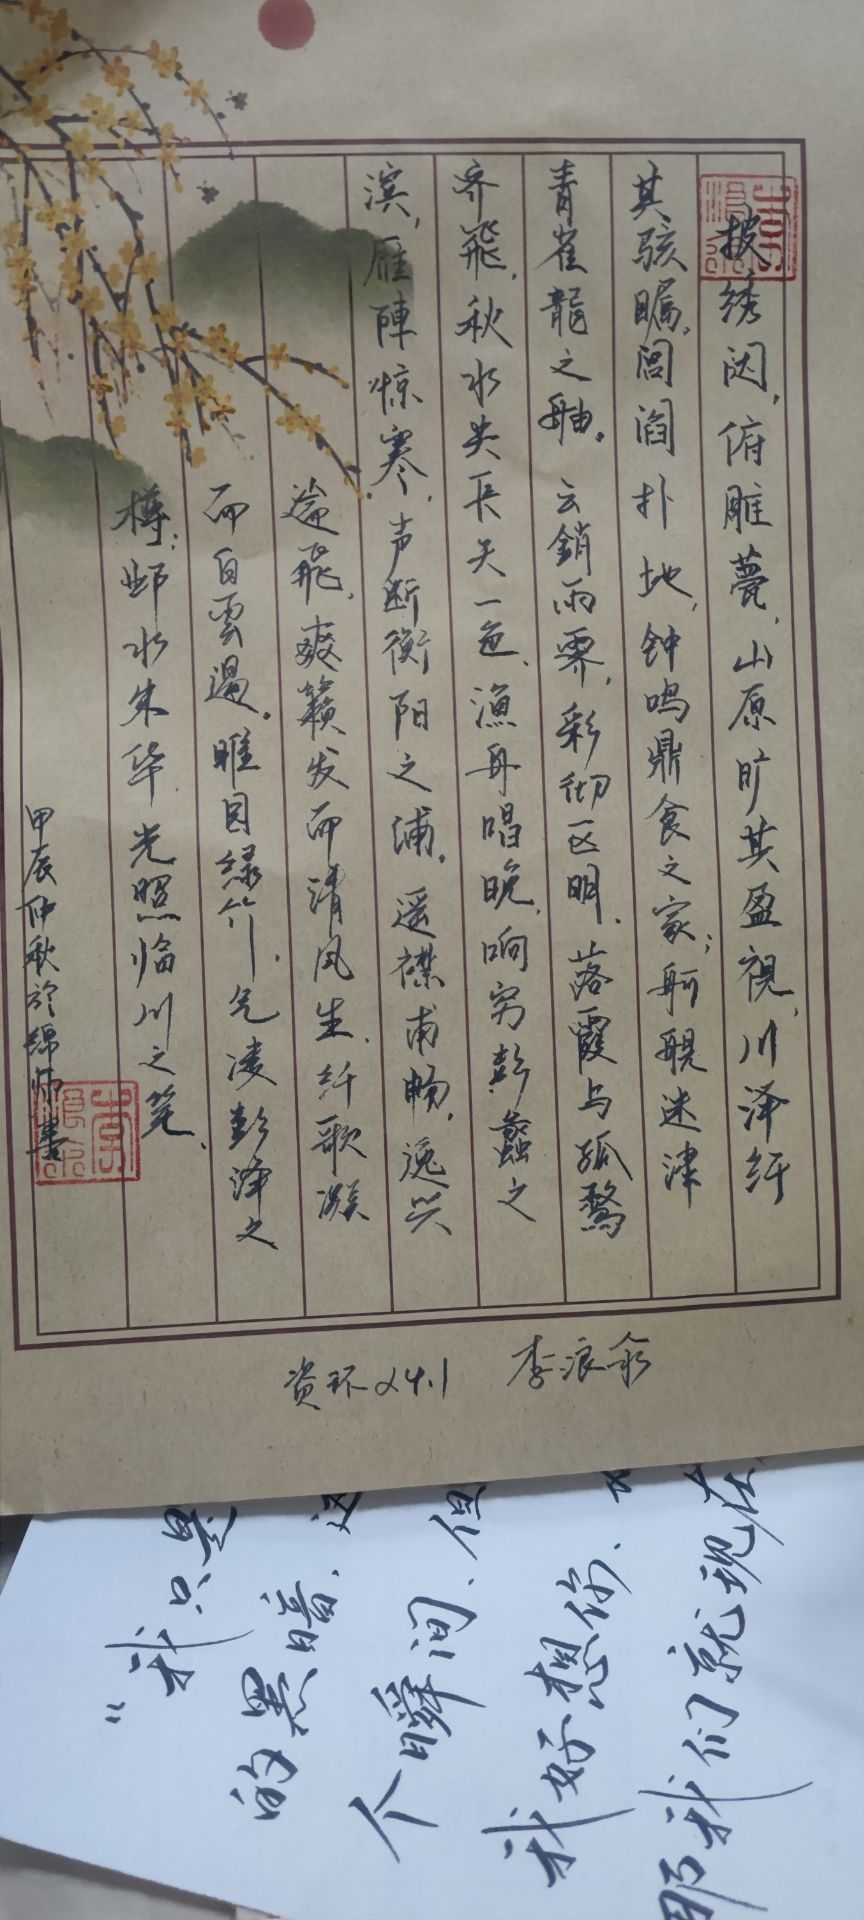 披绣闼，俯雕甍，山原旷其盈視，川泽纡
其骇瞩。闾阎扑地，钟鸣鼎食之家；舸艦迷津
青雀龍之舳。云銷雨霽，彩彻区明。落霞与孤鹜
齐飛，秋水共長天一色。漁舟唱晚，响穷彭蠡之
滨，雁陣惊寒，声断衡阳之浦。遥襟甫畅，逸兴
遄飛。爽籁发而清风生，纤歌凝
而白雲遏。睢园绿竹，气凌彭泽之
樽；邺水朱华，光照临川之笔。
甲辰仲秋於绵师書
资环24.1 李浪
“我只是
的黑暗，这
个瞬间，但
我好想你、
那我们就现在